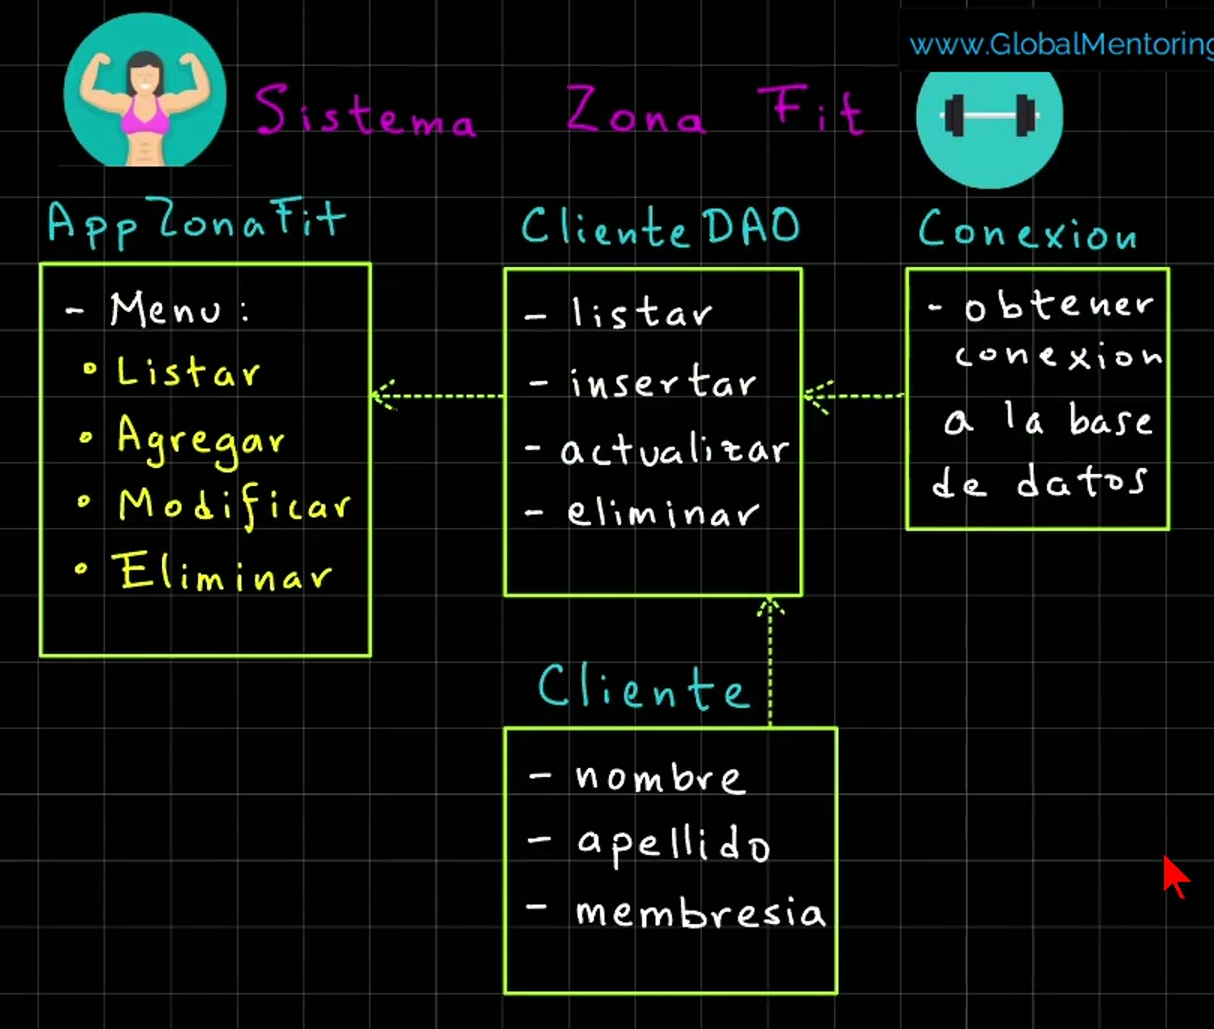 www.GlobalMentoring
Sistema Zona Fit
AppZonaFit
- Menu:
• Listar
• Agregar
• Modificar
• Eliminar
ClienteDAO
- listar
- insertar
- actualizar
- eliminar
Conexion
- obtener
conexion
a la base
de datos
Cliente
- nombre
- apellido
- membresia